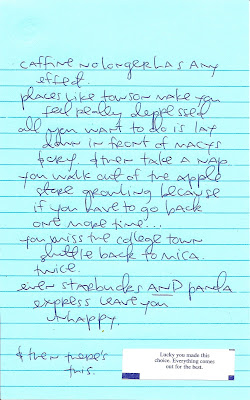 caffine no longer has any
effect.
places like towson make you
feel really depressed
all you want to do is lay
down in front of macys
& cry. & then take a nap.
you walk out of the apple
store growling because
if you have to go back
one more time...
you miss the college town
shuttle back to mica.
twice.
even starbucks AND panda
express leave you
unhappy.
& then there's
this.
Lucky you made this
choice. Everything comes
out for the best.